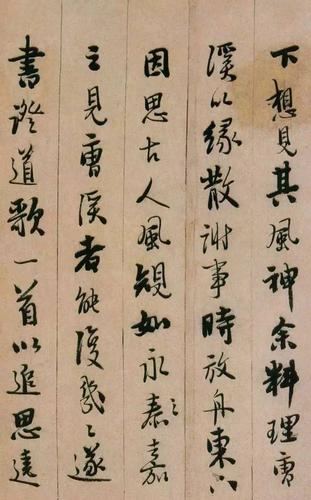 下想見其風神余料理曹
溪以緣散謝事時放舟東下
因思古人風規如永泰嘉
之見曹溪者能復幾人遂
書證道歌一首以追思遠